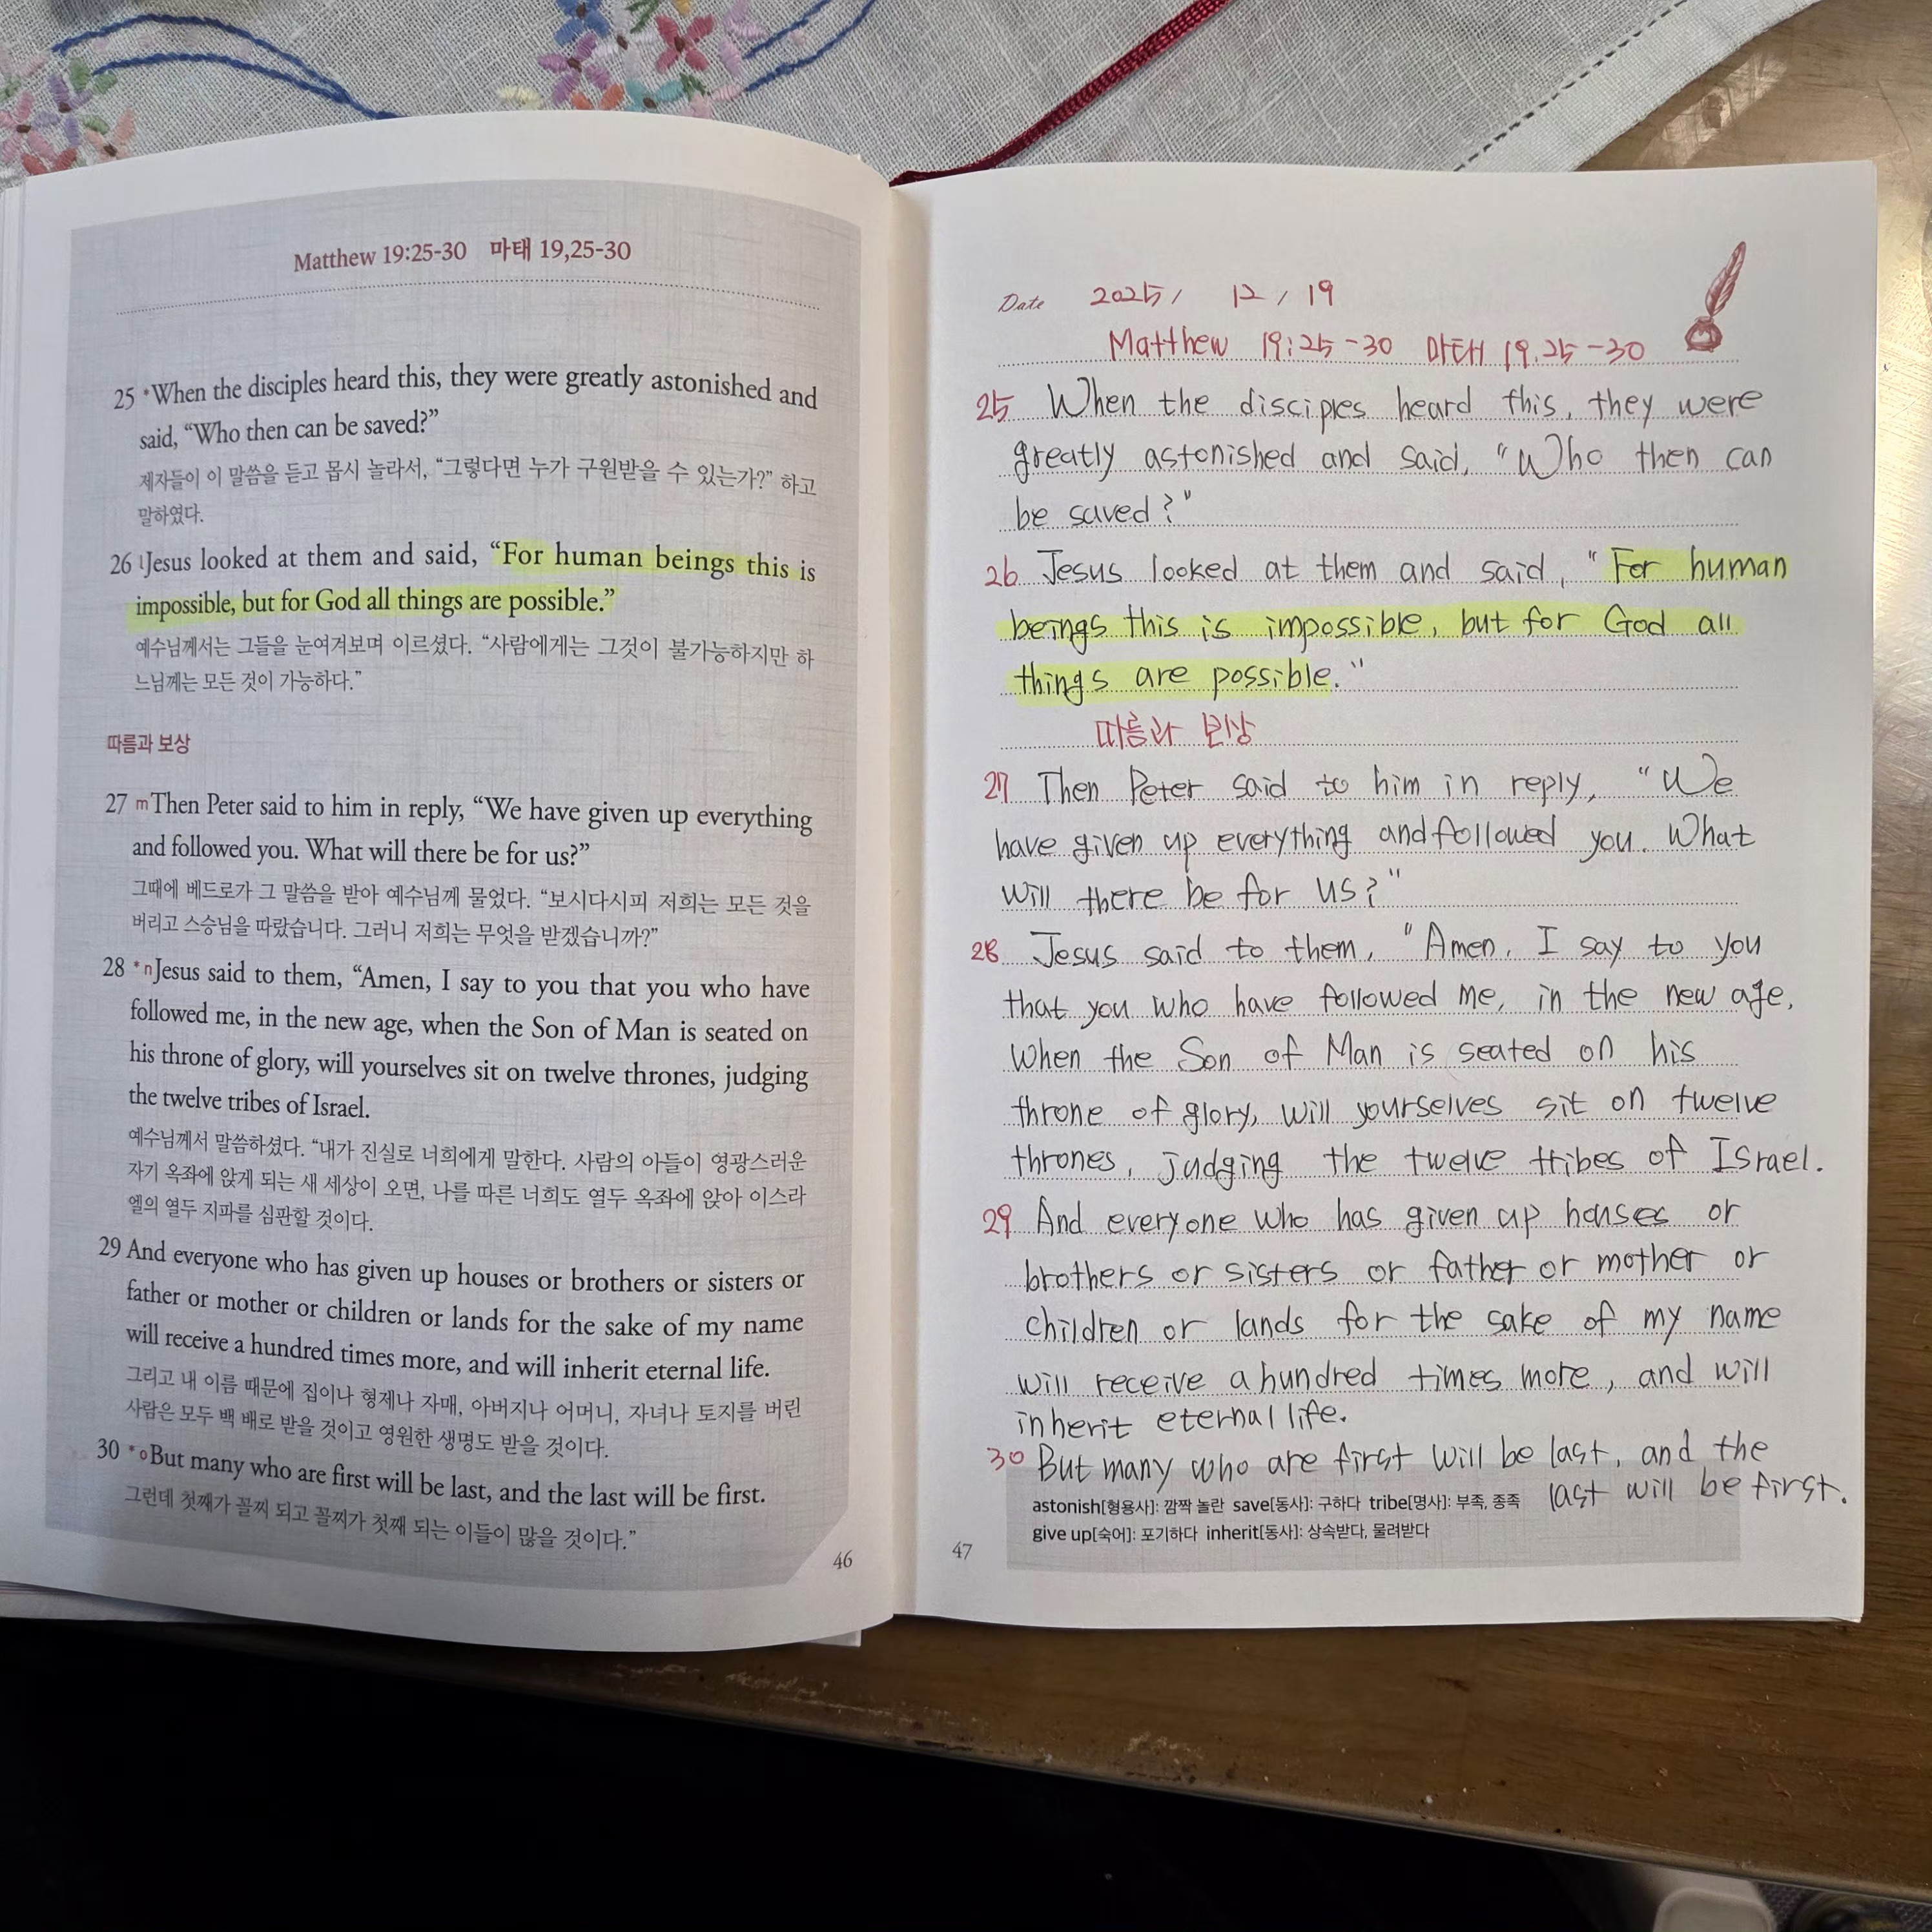 Matthew 19:25-30 마태 19,25-30
25 *When the disciples heard this, they were greatly astonished and
said, “Who then can be saved?”
제자들이 이 말씀을 듣고 몹시 놀라서, “그렇다면 누가 구원받을 수 있는가?” 하고
말하였다.
26 lJesus looked at them and said, “For human beings this is
impossible, but for God all things are possible.”
예수님께서는 그들을 눈여겨보며 이르셨다. “사람에게는 그것이 불가능하지만 하
느님께는 모든 것이 가능하다.”
따름과 보상
27 mThen Peter said to him in reply, “We have given up everything
and followed you. What will there be for us?”
그때에 베드로가 그 말씀을 받아 예수님께 물었다. “보시다시피 저희는 모든 것을
버리고 스승님을 따랐습니다. 그러니 저희는 무엇을 받겠습니까?”
28 *nJesus said to them, “Amen, I say to you that you who have
followed me, in the new age, when the Son of Man is seated on
his throne of glory, will yourselves sit on twelve thrones, judging
the twelve tribes of Israel.
예수님께서 말씀하셨다. “내가 진실로 너희에게 말한다. 사람의 아들이 영광스러운
자기 옥좌에 앉게 되는 새 세상이 오면, 나를 따른 너희도 열두 옥좌에 앉아 이스라
엘의 열두 지파를 심판할 것이다.
29 And everyone who has given up houses or brothers or sisters or
father or mother or children or lands for the sake of my name
will receive a hundred times more, and will inherit eternal life.
그리고 내 이름 때문에 집이나 형제나 자매, 아버지나 어머니, 자녀나 토지를 버린
사람은 모두 백 배로 받을 것이고 영원한 생명도 받을 것이다.
30 *oBut many who are first will be last, and the last will be first.
그런데 첫째가 꼴찌 되고 꼴찌가 첫째 되는 이들이 많을 것이다.”
46
Date 2025 / 12 / 19
Matthew 19:25-30 마태 19.25-30
25 When the disciples heard this, they were
greatly astonished and said, “Who then can
be saved?”
26 Jesus looked at them and said, “For human
beings this is impossible, but for God all
things are possible.”
따름과 보상
27 Then Peter said to him in reply, “We
have given up everything and followed you. What
will there be for us?”
28 Jesus said to them, “Amen, I say to you
that you who have followed me, in the new age,
when the Son of Man is seated on his
throne of glory, will yourselves sit on twelve
thrones, judging the twelve tribes of Israel.
29 And everyone who has given up houses or
brothers or sisters or father or mother or
children or lands for the sake of my name
will receive a hundred times more, and will
inherit eternal life.
30 But many who are first will be last, and the
last will be first.
astonish[형용사]: 깜짝 놀란 save[동사]: 구하다 tribe[명사]: 부족, 종족
give up[숙어]: 포기하다 inherit[동사]: 상속받다, 물려받다
47